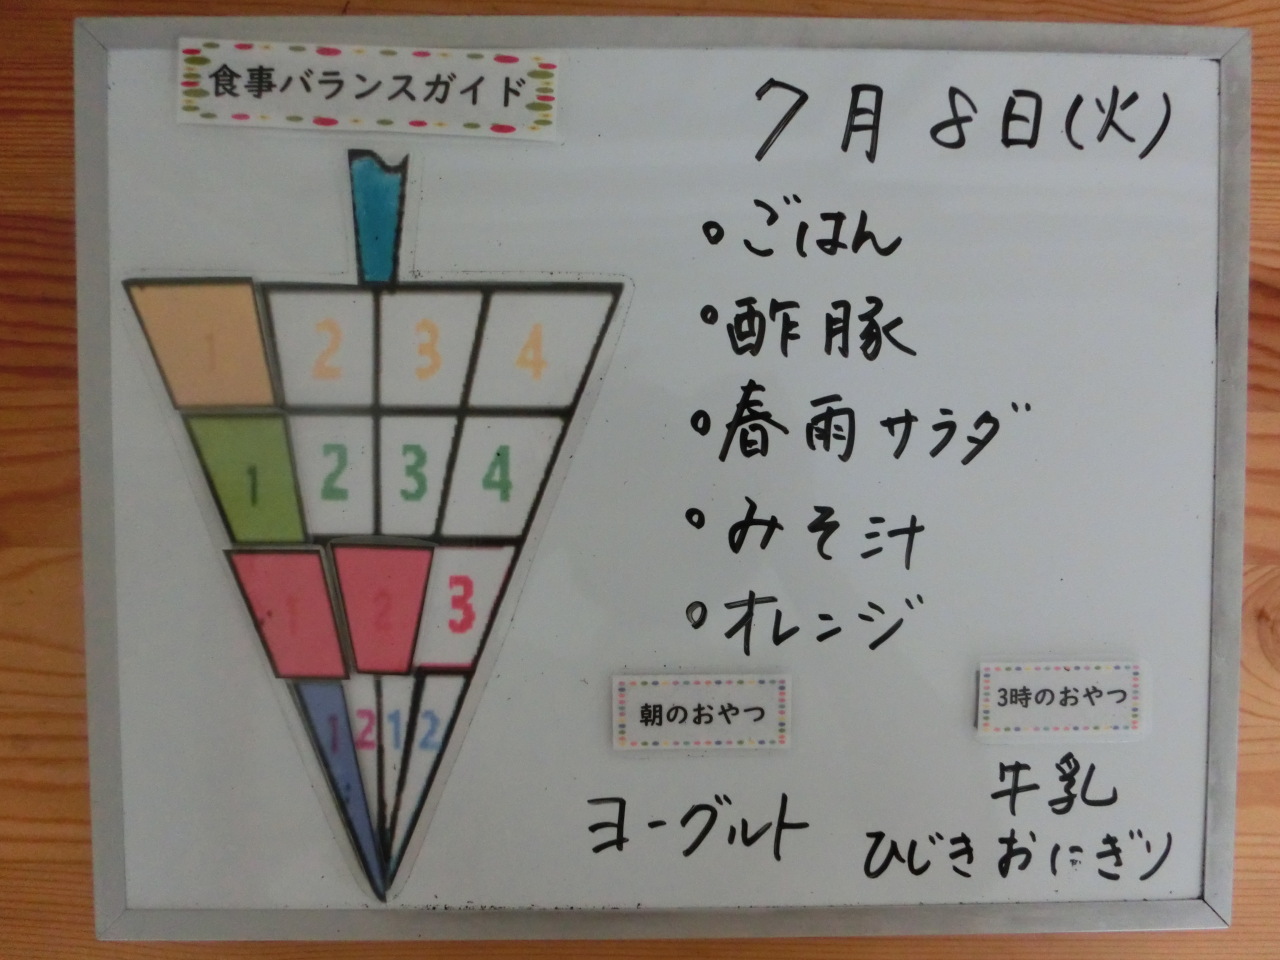 食事バランスガイド
7月8日(火)
・ごはん
・酢豚
・春雨サラダ
・みそ汁
・オレンジ
1 2 3 4
1 2 3 4
1 2 3
1 2 1 2
朝のおやつ
ヨーグルト
3時のおやつ
牛乳
ひじきおにぎり